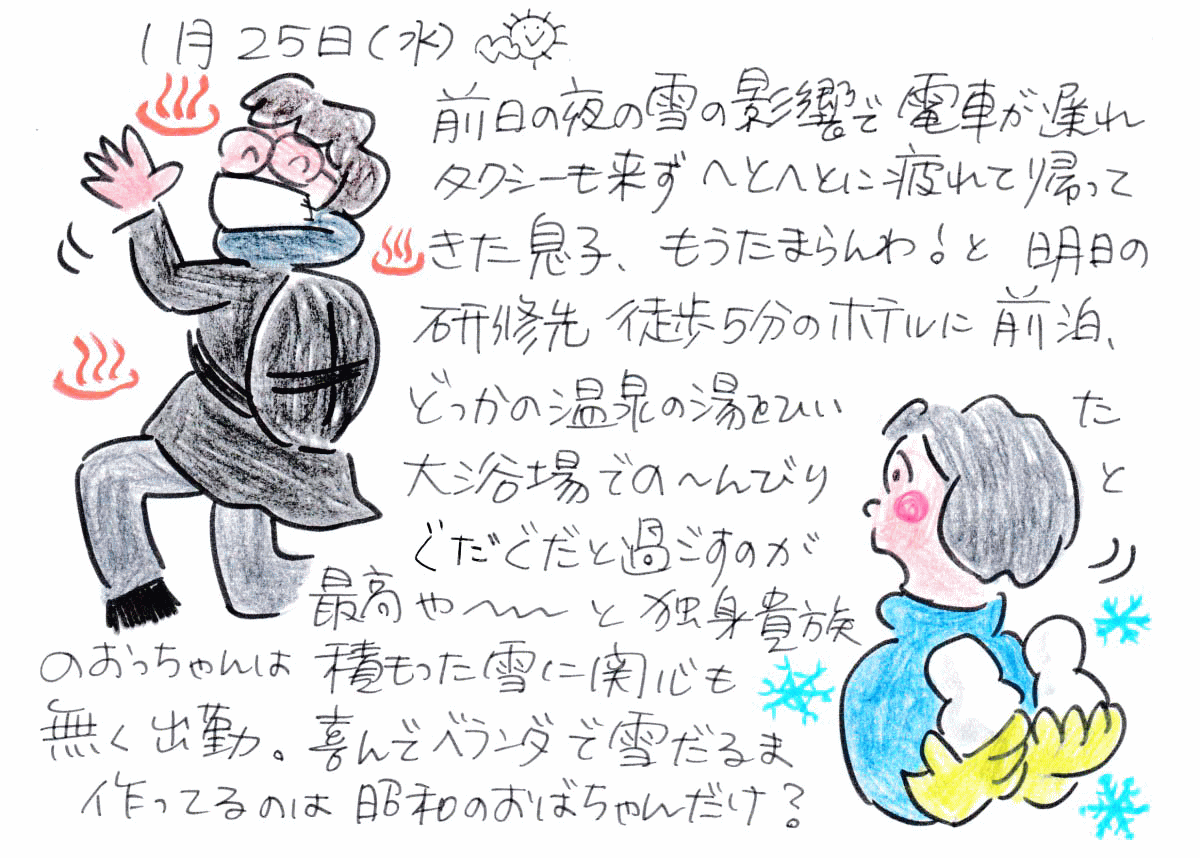 1月25日(水)
前日の夜の雪の影響で電車が遅れ
タクシーも来ずへとへとに疲れて帰って
きた息子、もうたまらんわ!と明日の
研修先徒歩5分のホテルに前泊、
どっかの温泉の湯をひいた
大浴場での〜んびりと
ぐだぐだと過ごすのが
最高や〜〜〜と独身貴族
のおっちゃんは積もった雪に関心も
無く出勤。喜んでベランダで雪だるま
作ってるのは昭和のおばちゃんだけ?